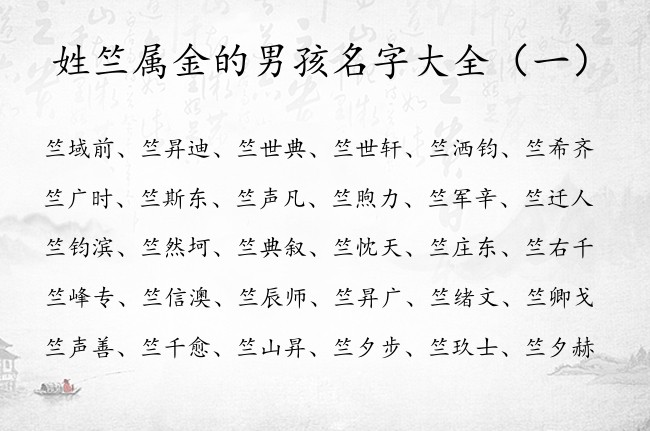 姓竺属金的男孩名字大全（一）
竺域前、竺昇迪、竺世典、竺世轩、竺洒钧、竺希齐
竺广时、竺斯东、竺声凡、竺煦力、竺军辛、竺迁人
竺钧滨、竺然坷、竺典叙、竺忱天、竺庄东、竺右千
竺峰专、竺信澳、竺辰师、竺昇广、竺绪文、竺卿戈
竺声善、竺千愈、竺山昇、竺夕步、竺玖士、竺夕赫